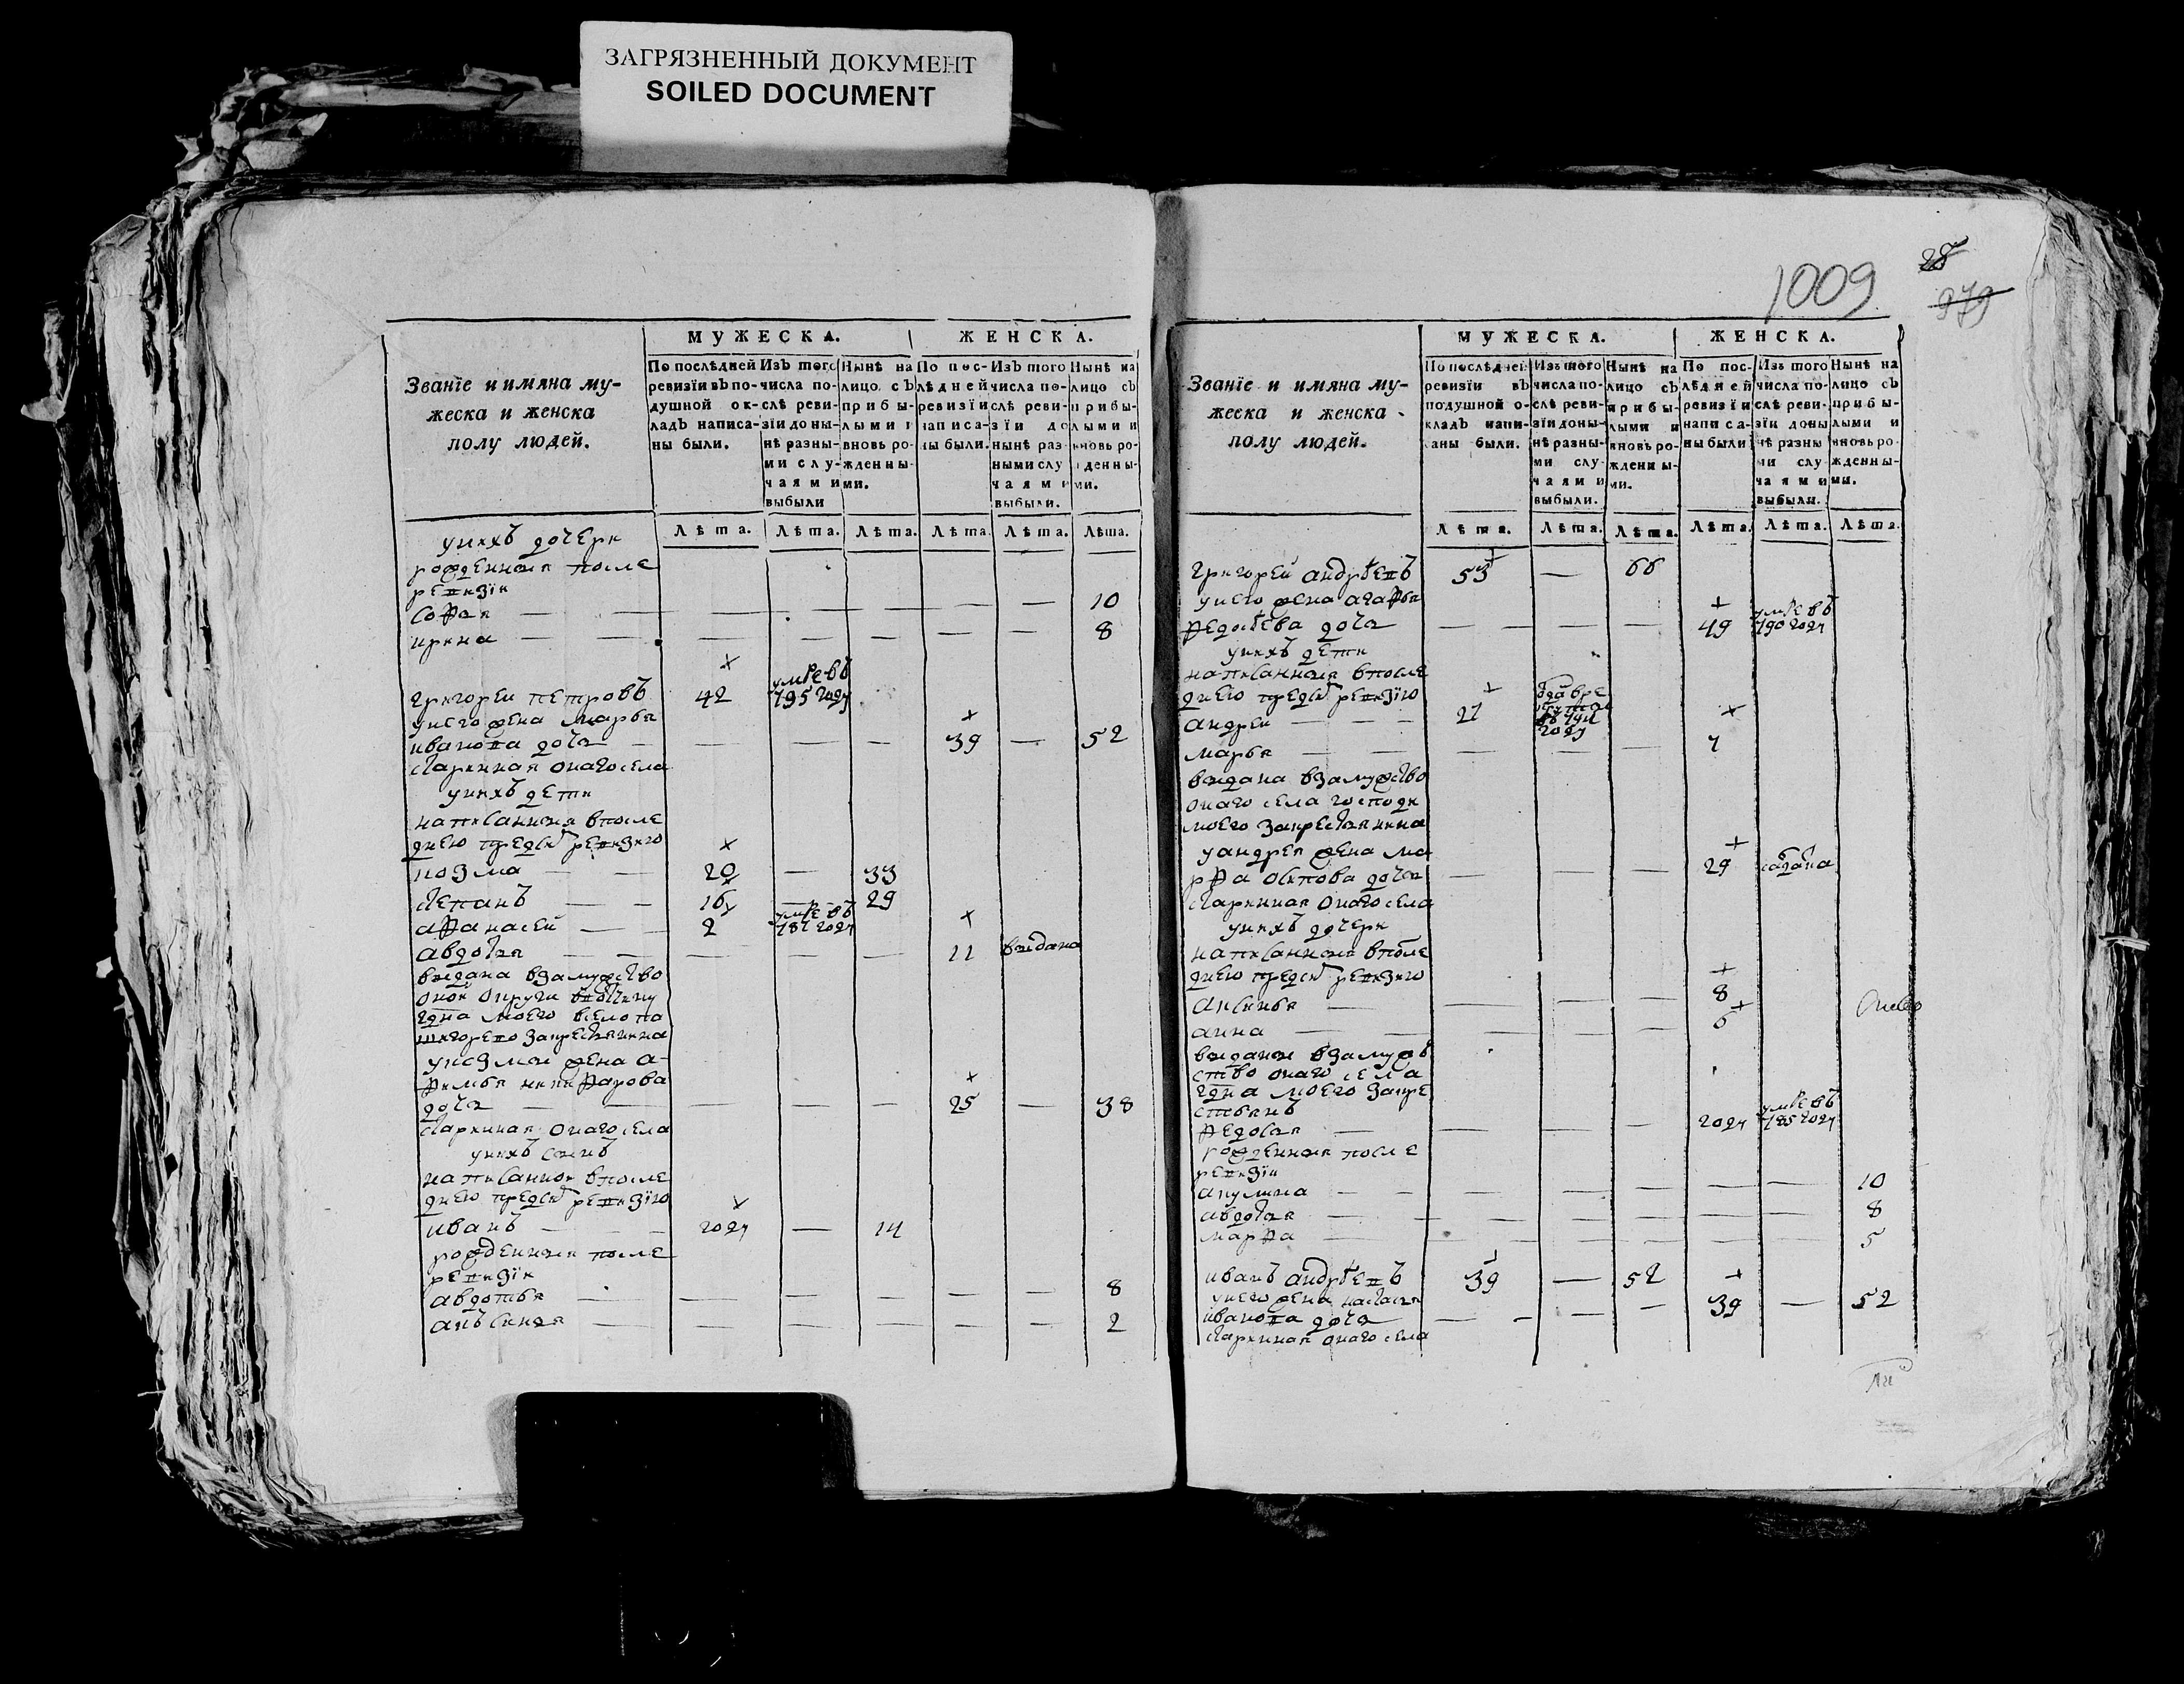 ЗАГРЯЗНЕННЫЙ ДОКУМЕНТ
SOILED DOCUMENT
1009
28
979
МУЖЕСКА. ЖЕНСКА.
Званїе и имяна му-
жеска и женска
полу людей.
По послѣдней ревизїи въ по-
душной ок-
ладъ написа-
ны были.
Изъ того
числа по-
слѣ реви-
зїи доны-
нѣ разны-
ми слу-
чаями
выбыли
Нынѣ на
лицо съ
прибы-
лыми и
вновь ро-
жденны-
ми.
По пос-
лѣдней
ревизїи
написа-
ны были.
Изъ того
числа по-
слѣ реви-
зїи до
нынѣ раз
ными слу
чаями
выбыли.
Нынѣ на
лицо съ
прибы-
лыми и
вновь ро-
жденны-
ми.
Лѣта. Лѣта. Лѣта. Лѣта. Лѣта. Лѣта.
унихъ дочери
рожденныя после
ревизїи
софья — — — — — — 10
ирина — — — — — — 8
григореи петровъ 42 умре въ 795 году
унего жена марья
иванова дочь — — — — 39 — 52
старинная онаго села
унихъ дети
написанныя впосле
днею предъ сим ревизию
козма — — 20 — 33
степанъ — — 16 — 29
афанасеи — 2 умре въ 787 году
авдотья — — — — 11 выдана
выдана взамужство
онои округи вотчину
гдна моего село
крестьянина
укозмы жена а-
фимья никифорова
дочь — — — — 25 — 38
старинная онаго села
унихъ сынъ
написаннои впосле
днею предъ сим ревизїю
иванъ — — году — 14
рожденныя после
ревизїи
авдотья — — — — — — 8
аксинья — — — — — — 2
МУЖЕСКА. ЖЕНСКА.
Званїе и имяна му-
жеска и женска
полу людей.
По послѣдней
ревизїи въ
подушной о-
кладъ напи-
саны были.
Изъ того
числа по-
слѣ реви-
зїи доны-
нѣ разны-
ми слу-
чаями
выбыли.
Нынѣ на
лицо съ
прибы-
лыми и
вновь ро-
ждены-
ми.
По пос-
лѣдней
ревизїи
написа-
ны были
Изъ того
числа по-
слѣ реви-
зїи доны
нѣ разны
ми слу-
чаями
выбыли.
Нынѣ на
лицо съ
прибы-
лыми и
вновь ро-
жденны-
ми.
Лѣта. Лѣта. Лѣта. Лѣта. Лѣта. Лѣта.
григореи андрѣевъ 53 — 66
унего жена агафья
федосѣева дочь — — — — 49 умре въ 790 году
унихъ дети
написанныя впосле
днею предъ сим ревизїю
андреи — — 27 году
марья — — — — 7
выдана взамужство
онаго села господи
моего закрестьянина
уандрея жена ма
рфа осипова дочь — — — 29 отдана
старинная онаго села
унихъ дочери
написанныя впосле
днею предъ сим ревизию
аксинья — — — — 8
анна — — — — 6
выданы взамуж
ство онаго села
гдна моего закре
стьянъ
федосья — — — — году умре въ 785 году
рожденныя после
ревизїи
акулина — — — — — — 10
авдотья — — — — — — 8
марфа — — — — — — 5
иванъ андрѣевъ 39 — 52
унего жена настасья
иванова дочь — — — 39 — 52
старинная онаго села